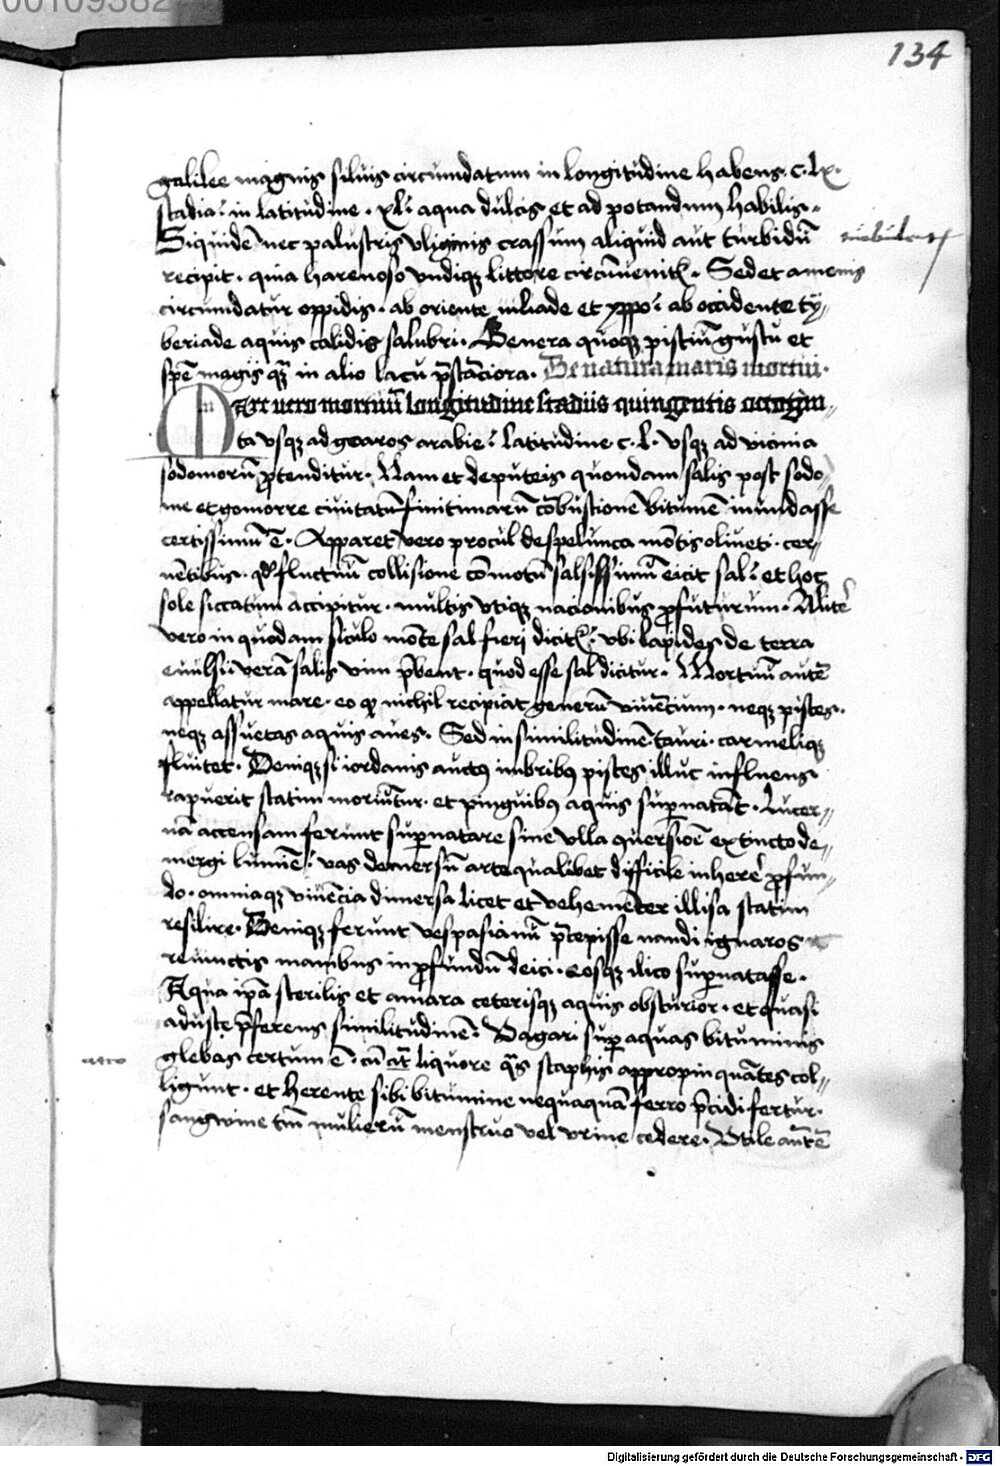 00109382
134
galilee magnis siluis circumdatum in longitudine habens. c. lx.
stadia: in latitudine. xl: aqua dulcis et ad potandum habilis.
Siquidē nec palustris vliginis crassum aliquid aut turbidū
recipit. quia harenoso vndiqꝫ littore circūuenit᷑. Sed et amenis
circumdatur oppidis. ab oriente iuliade et yppo: ab occidente ty-
beriade aquis calidis salubri. Genera quoqꝫ pisciū gustu et
spē magis qꝫ in alio lacu p̄stāciora. De natura maris mortui.
MAre uero mortuū longitudine stadiis quingentis octogin-
ta vsqꝫ ad zoaros arabie: latitudine c. l. vsqꝫ ad vicinia
sodomorū ꝓtenditur. Nam et de puteis quondam salis post sodo-
me et gomorre ciuitatū finitimarū cōbustionē bitumē inundasse
certissimū ē. Apparet vero procul de spelunca mōtis oliueti. cer-
nētibus. qd̓ fluctuū collisione cōmotū salsissimū eicit sal: et hoc
sole siccatum accipitur. multis vtiqꝫ nacionibus ꝓfuturum. Alit̓
vero in quodam siculo mōte sal fieri dicit᷑. vbi lapides de terra
euulsi verā salis vim p̄bent. quod esse sal dicitur. Mortuū autē
appellatur mare. eo ꝙ nichil recipiat generū viuēcium. neqꝫ pisces.
neqꝫ assuetas aquis aues. Sed in similitudinē tauri. cameliqꝫ
fluitet. Deniqꝫ si iordanis auctꝰ imbribꝰ pisces illuc influens
rapuerit statim moriūtur. et pinguibꝰ aquis supernatāt. Lucer-
nā accensam ferunt supernatare sine vlla ꝯuersiōe extincto de-
mergi lumīe: vas demersū arte qualibet difficile inherē ꝓfun-
do. omniaqꝫ viuēcia dimersa licet et vehementer illisa statim
resilire. Deniqꝫ ferunt vespasianū p̄cepisse nandi ignaros
reuinctis manibus in ꝓfundū deici. eosqꝫ ilico supernatasse.
Aqua ip̄a sterilis et amara ceterisqꝫ aquis obscurior. et quasi
aduste p̄ferens similitudinē. Vagari super aquas bituminis
glebas certum ē. cū at̄ liquore qᷓs scaphis appropinquātes col-
ligunt. et herente sibi bitumine nequaquā ferro p̄cidi fertur.
sangwine tm̄ mulierū menstruo vel vrine cedere. Vtile autē
Digitalisierung gefördert durch die Deutsche Forschungsgemeinschaft - DFG